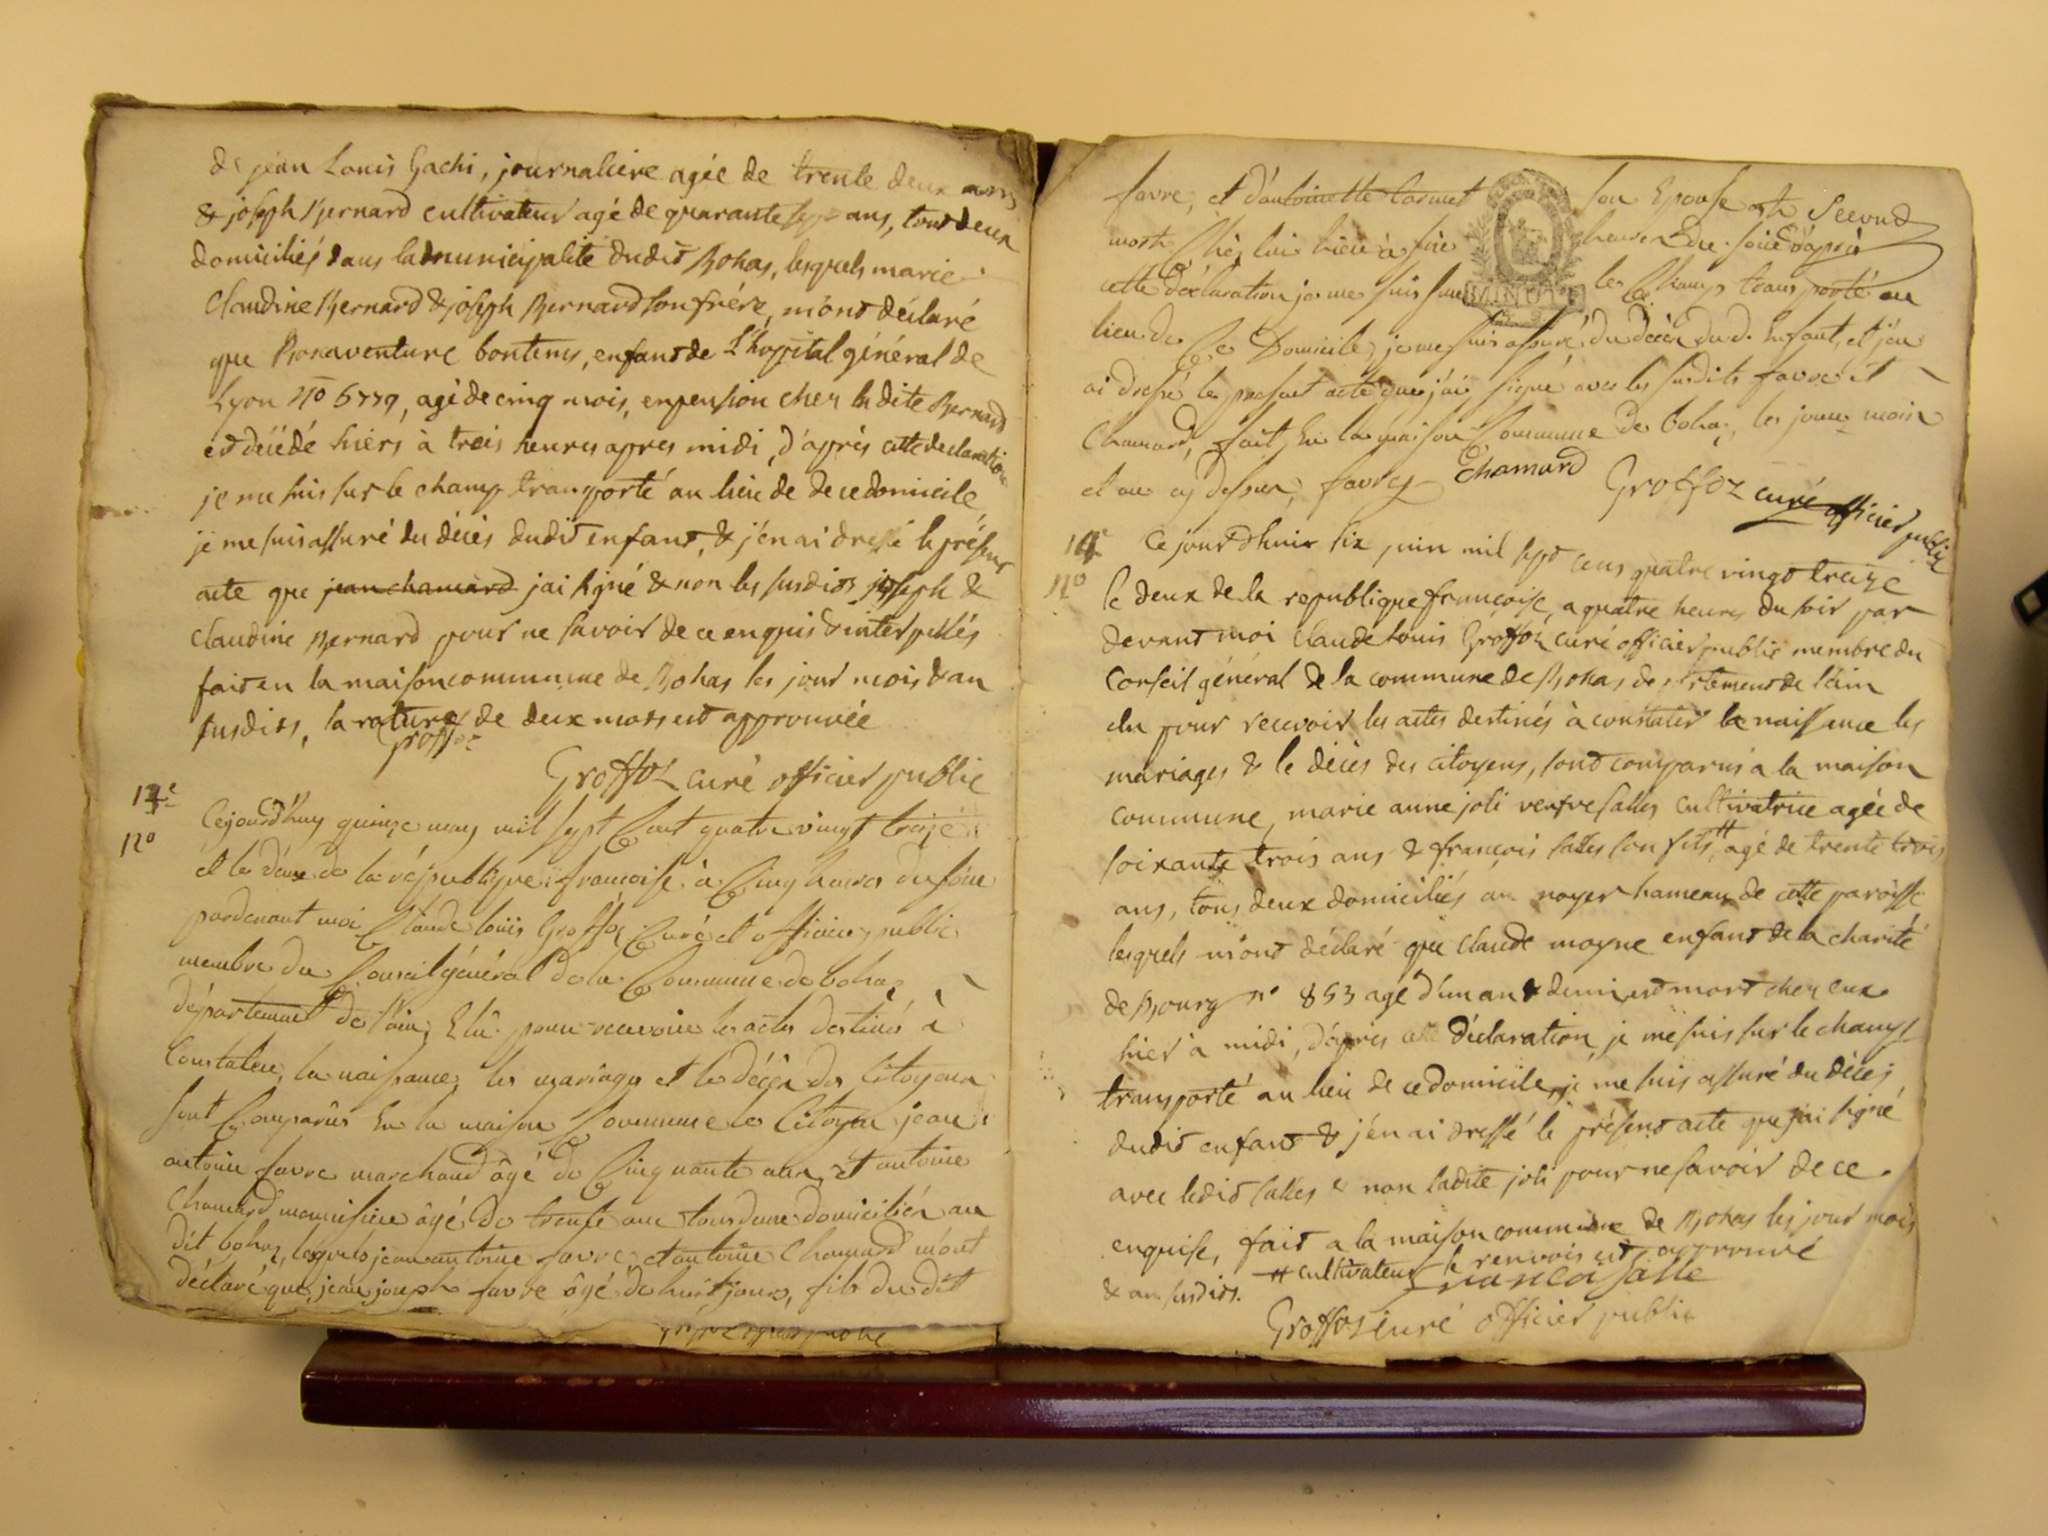 de jean Louis Gachi, journaliere agée de trente deux ans
& joseph Bernard cultivateur agé de quarante sept ans, tous deux
domiciliés dans la municipalité dudit Bohas, lesquels marie
Claudine Bernard & joseph Bernard son frére, m'ont déclaré
que Bonaventure bontems, enfant de L'hopital général de
Lyon No 6779, agé de cinq mois, en pension chez la dite Bernard
est décédé hiers à trois heures apres midi, d'après cette declaration
je me suis sur le champ transporté au lieu de de ce domicile
je me suis assuré du décès dudit enfant, & j'en ai dressé le présent
acte que jean chamard jai signé & non les susdits joseph &
Claudine Bernard pour ne savoir de ce enquis & interpellés
fait en la maison commune de Bohas les jour mois & an
susdits, la rature de deux mots est approuvée
Groffoz
Groffoz curé officier public
13e
No
Cejourd'huy quinze may mil sept Cent quatre vingt treize
et le deux de la république francoise à Cinq heures du soir
pardevant moi Claude louis Groffoz Curé et officier public
membre du Conseil général de la Commune de bohaz
département de l'ain, Elû pour recevoir les actes destinés à
Constater, la naissance, les mariages et le décès des Citoyens
sont Comparûs En la maison Commune le Citoyen jean
antoine favre marchand âgé de Cinquante ans, et antoine
Chamard menuisier âgé de trente ans tous deux domiciliés au
dit bohaz, lesquels jean antoine favre, et antoine Chamard m'ont
déclaré que, jean joseph favre âgé de huit jours, fils du dit
favre, et d'antoinette son Epouse en Second
mort Chés lui hier à six heures du soir d'après
cette déclaration je me suis sur le Champ transporté au
MINUTE
lieu de Ce Domicile, je me suis assuré, du décès dud. Enfant, et j'en
ai dressé le présent acte que j'ai signé avec les susdits favre et
Chamard, fait En la maison Commune de bohaz, les jour mois
et an cy dessus, favre Chamard Groffoz curé officier public
14e
No
Ce jourdhuir six juin mil sept cens quatre vingt treize
le deux de la republique françoise, a quatre heures du soir par
devant moi Claude Louis Groffoz curé officier public membre du
Conseil général de la commune de Bohas departement de l'ain
elu pour recevoir les actes destinés à constater la naissance les
mariages & le décès des citoyens, sont comparus a la maison
commune, marie anne joli veufve salles cultivatrice agée de
soixante trois ans & françois salles son fils #, agé de trente trois
ans, tous deux domiciliés au noyer hameau de cette paroisse
lesquels m'ont déclaré que Claude moyne enfant de la charité
de Bourg no 853 agé d'un an & demi est mort chez eux
hier à midi, d'après cette déclaration, je me suis sur le champ
transporté au lieu de ce domicile, je me suis assuré du décès
dudit enfant & j'en ai dressé le présent acte que j'ai signé
avec ledit salles & non ladite joli pour ne savoir de ce
enquise, fait a la maison commune de Bohas les jour mois
& an susdits. # cultivateur le renvois est approuvé
francoi salle
Groffoz curé officier public